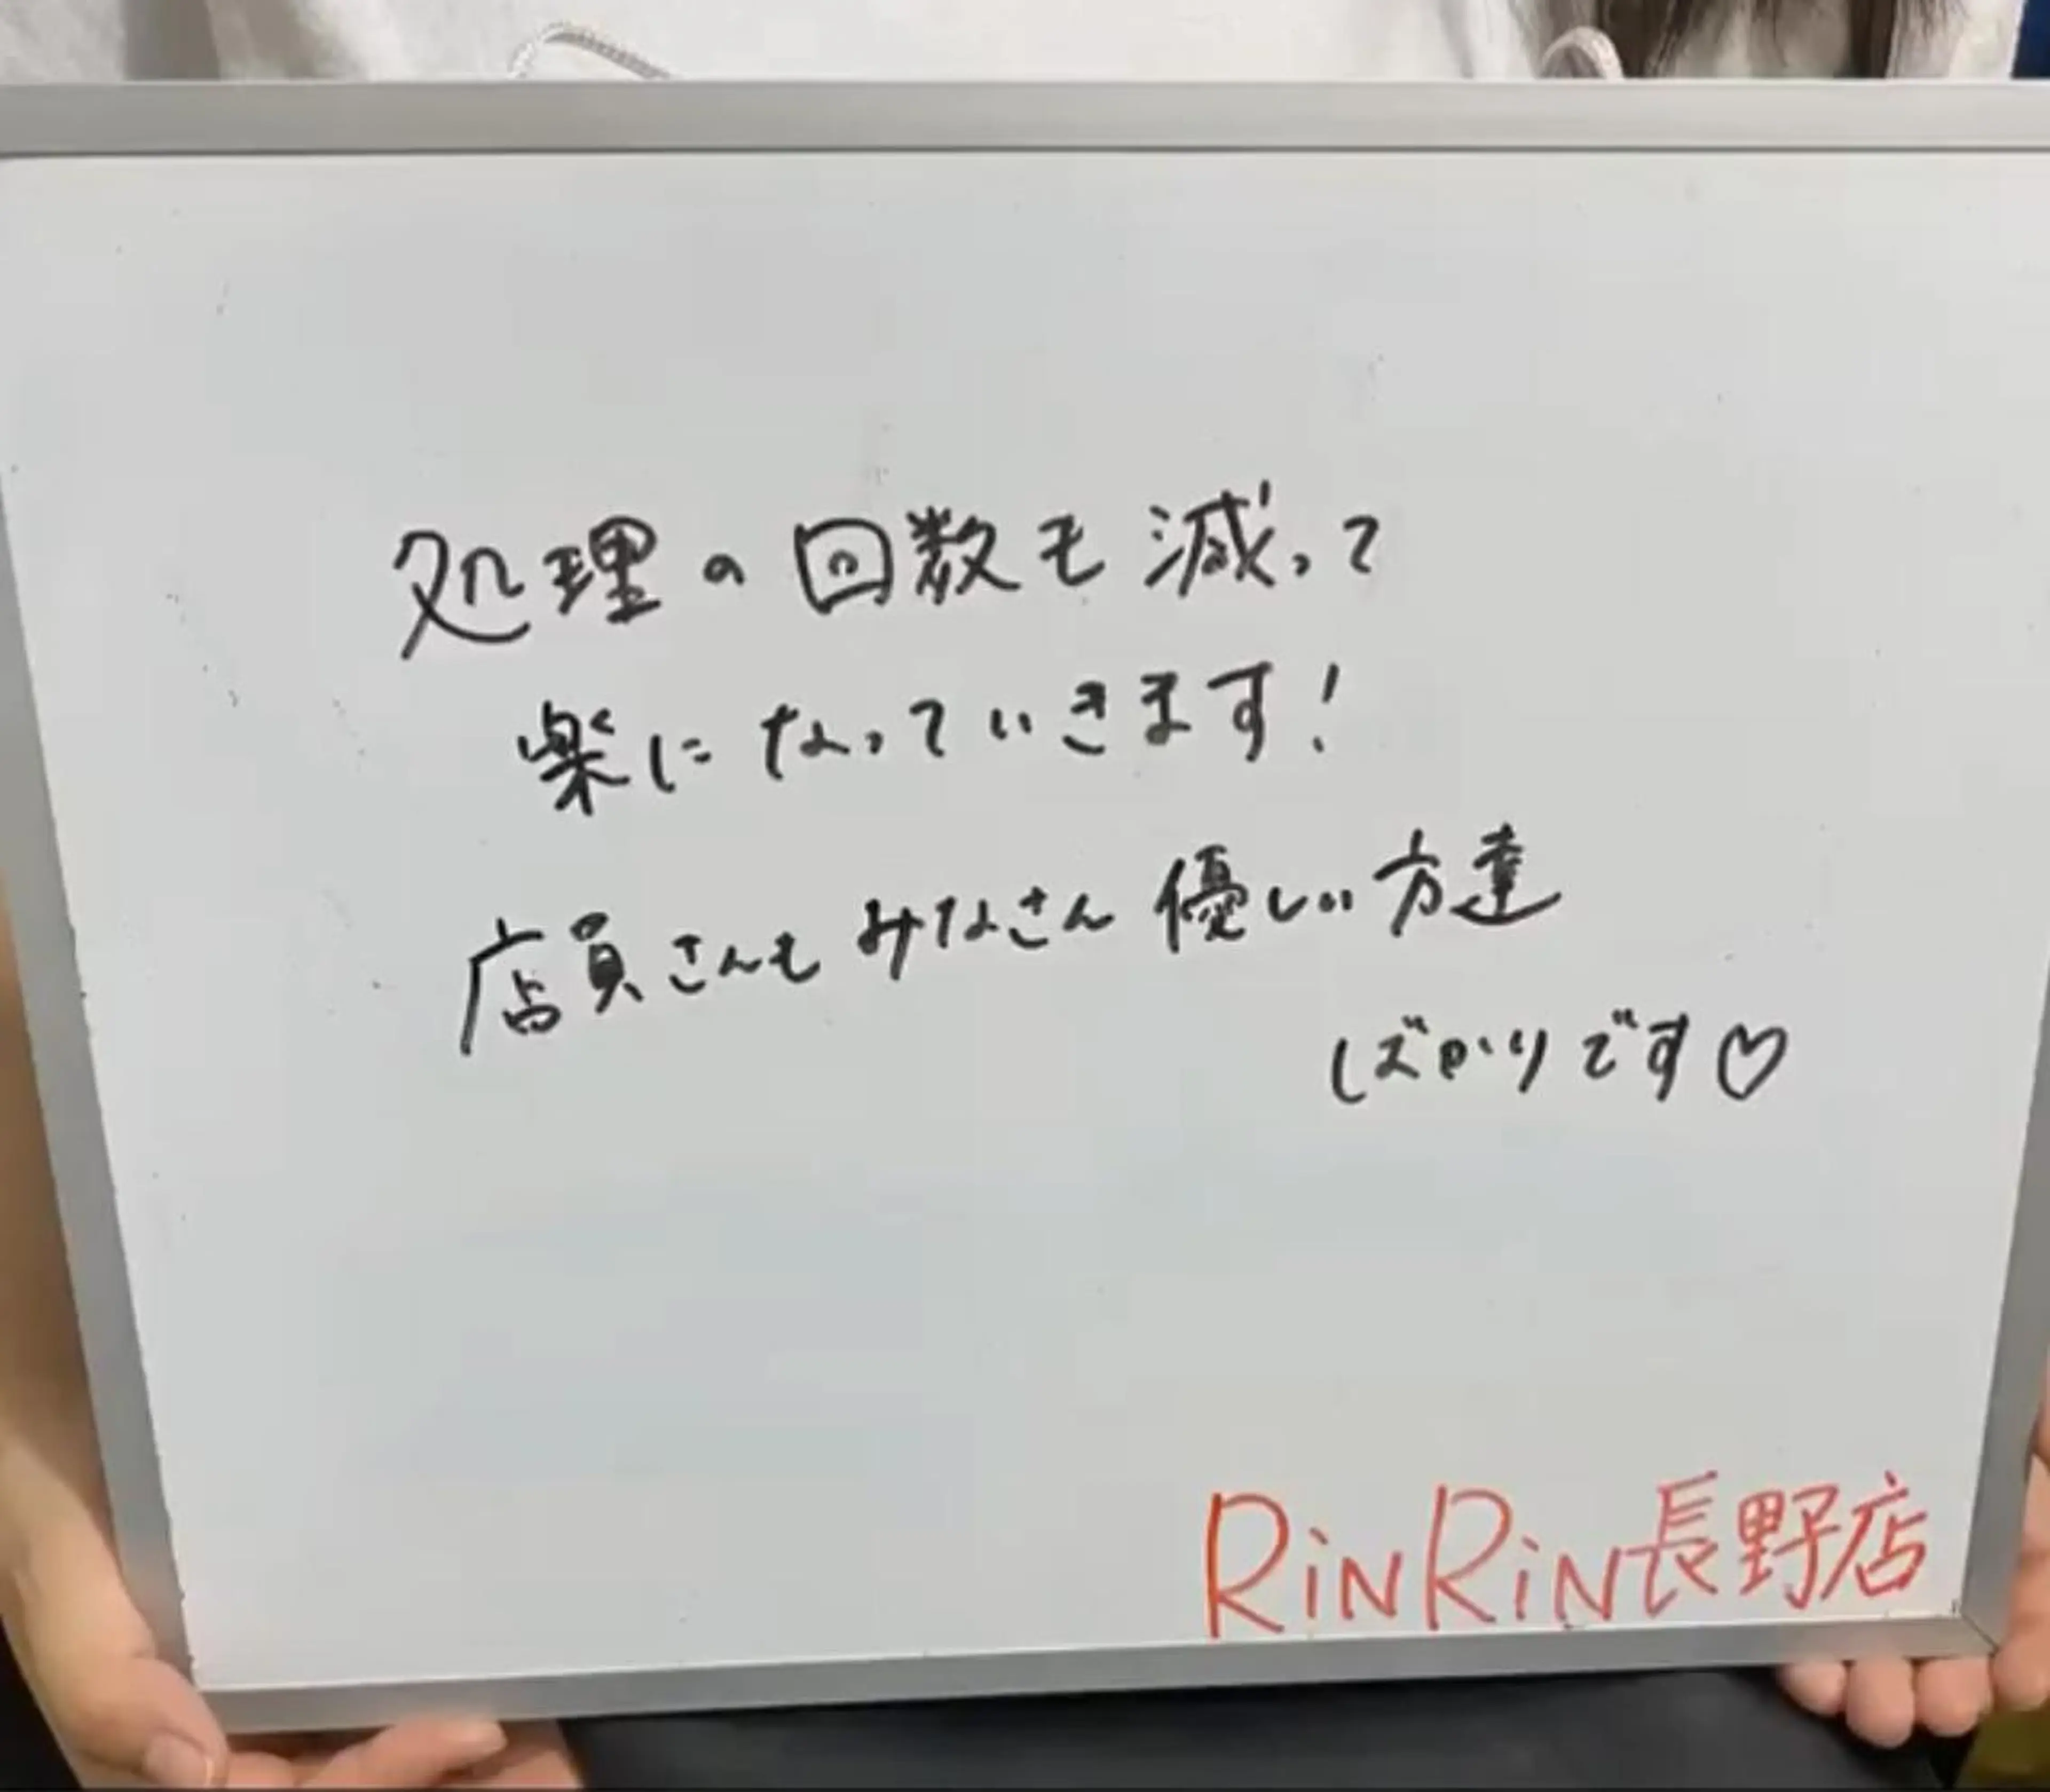 処理の回数も減って
楽になっていきます!
店員さんもみなさん優しい方達
ばかりです♡
RiNRiN長野店